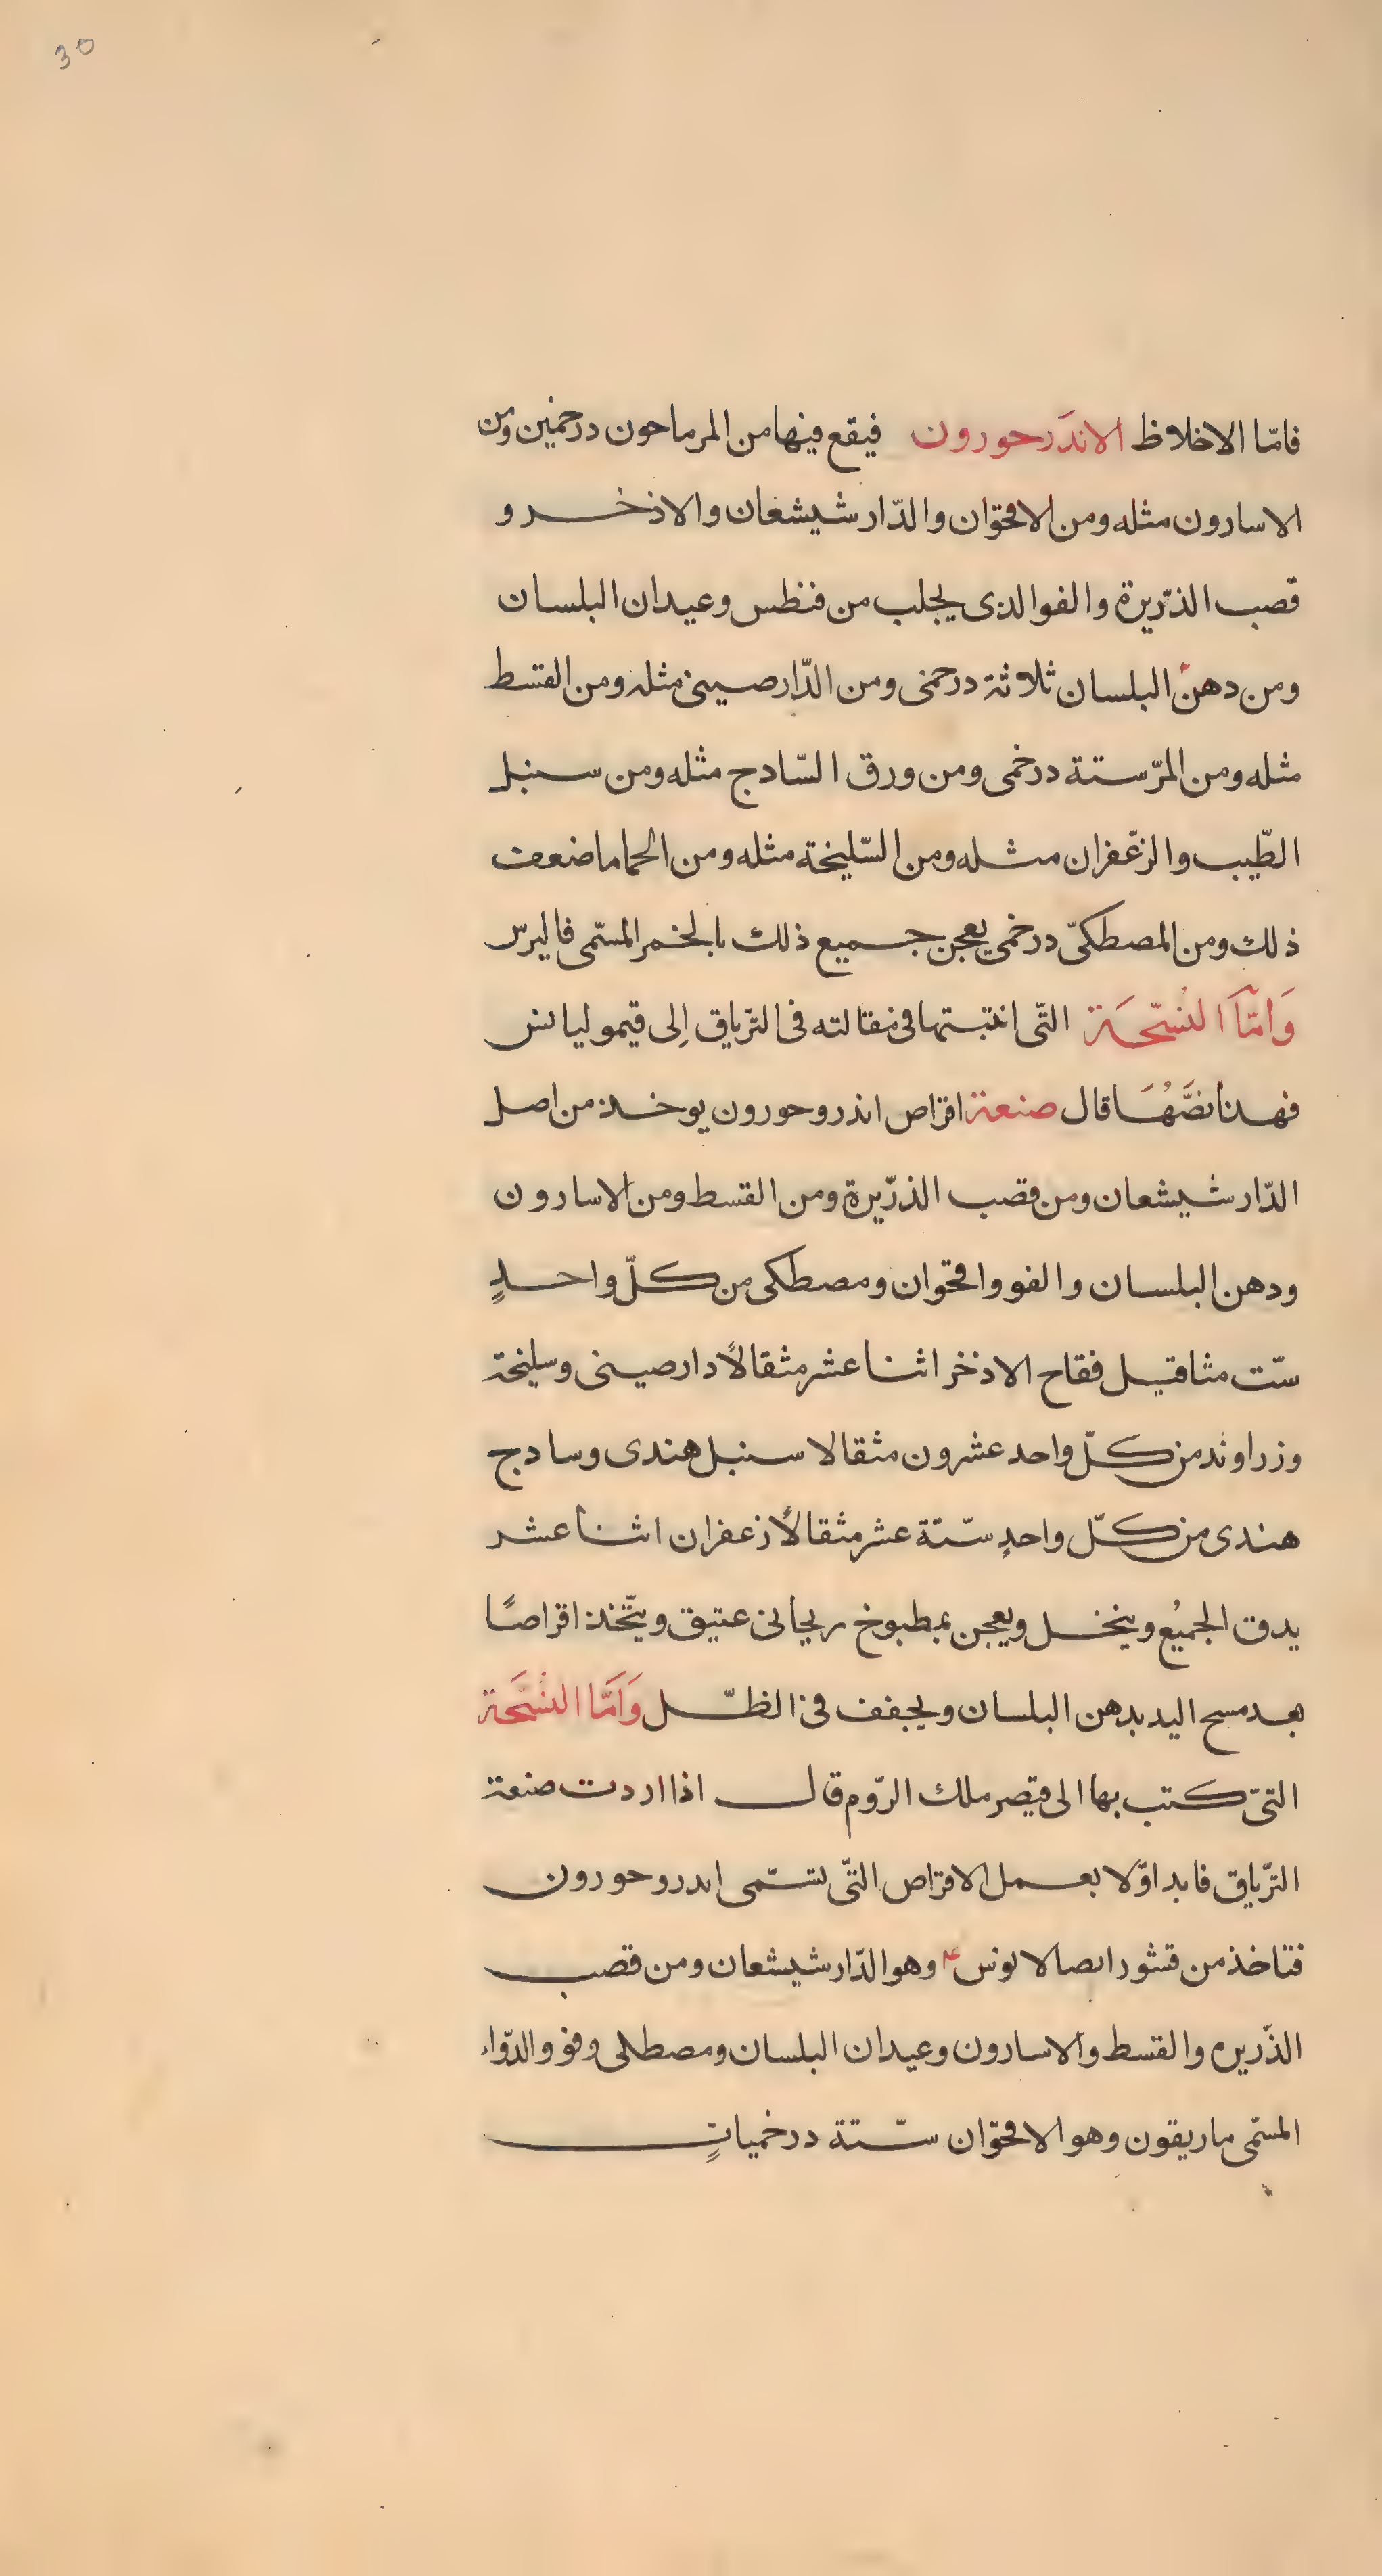 30
فامّا الاخلاوظ الاندَرحورون فيقع فيها من المرماحون درخمين ومن
الاسارون مثله ومن الاقحوان والدّارشيشعان والاذخر و
قصب الذرّيرة والفوالذى يجلب من فنطس وعيدان البلسان
ومن دهن البلسان ثلاثة درخمى ومن الدّارصينى مثله ومن القسط
مثله ومن المرّ ستة درخمى ومن ورق السّادج مثله ومن سنبل
الطّيب والزعّفران مثله ومن السّليخة مثله ومن الحماما ضعف
ذلك ومن المصطكىّ درخمى يعجن جميع ذلك بالخمر المسمّى فاليرس
وَامّاَ النسّحَة التّى اثبتها فى مقالته فى الترّياق اِلى قيموليانس
فهذا نصَّهُا قال صنعة اقراص اندروحورون يوخذ من اصل
الدّارشيشعان ومن قصب الذرّيرة ومن القسط ومن الاسارون
ودهن البلسان والفو واقحوان ومصطكى من كلّ واحدٍ
ستّ مثاقيل فقاح الاذخر اثنا عشر مثقالًا دارصينى وسليخة
وزراوند من كلّ واحد عشرون مثقالا سنبل هندى وسادج
هندى من كلّ واحدٍ ستّة عشر مثقالًا زعفران اثنا عشر
يدق الجميُع وينخل ويعجن بمطبوخ ريحانى عتيق ويتّخذ اقراصًا
بعد مسح اليد بدهن البلسان ويجفف فى الظلّ وَاَمّا النسُّحَة
التىّ كتب بها الى قيصر ملك الرّوم قال اذا اردت صنعة
الترّياق فابدا اوّلا بعمل الاقراص التّى تسّمى اندروحورون
فتاخذ من قشور اصالاىوس وهو الدّارشيشعان ومن قصب
الذّريره والقسط والاسارون وعيدان البلسان ومصطكى وفو والدّواء
المسمّى ماريقون وهو الاقحوان ستّة درخمياتٍ